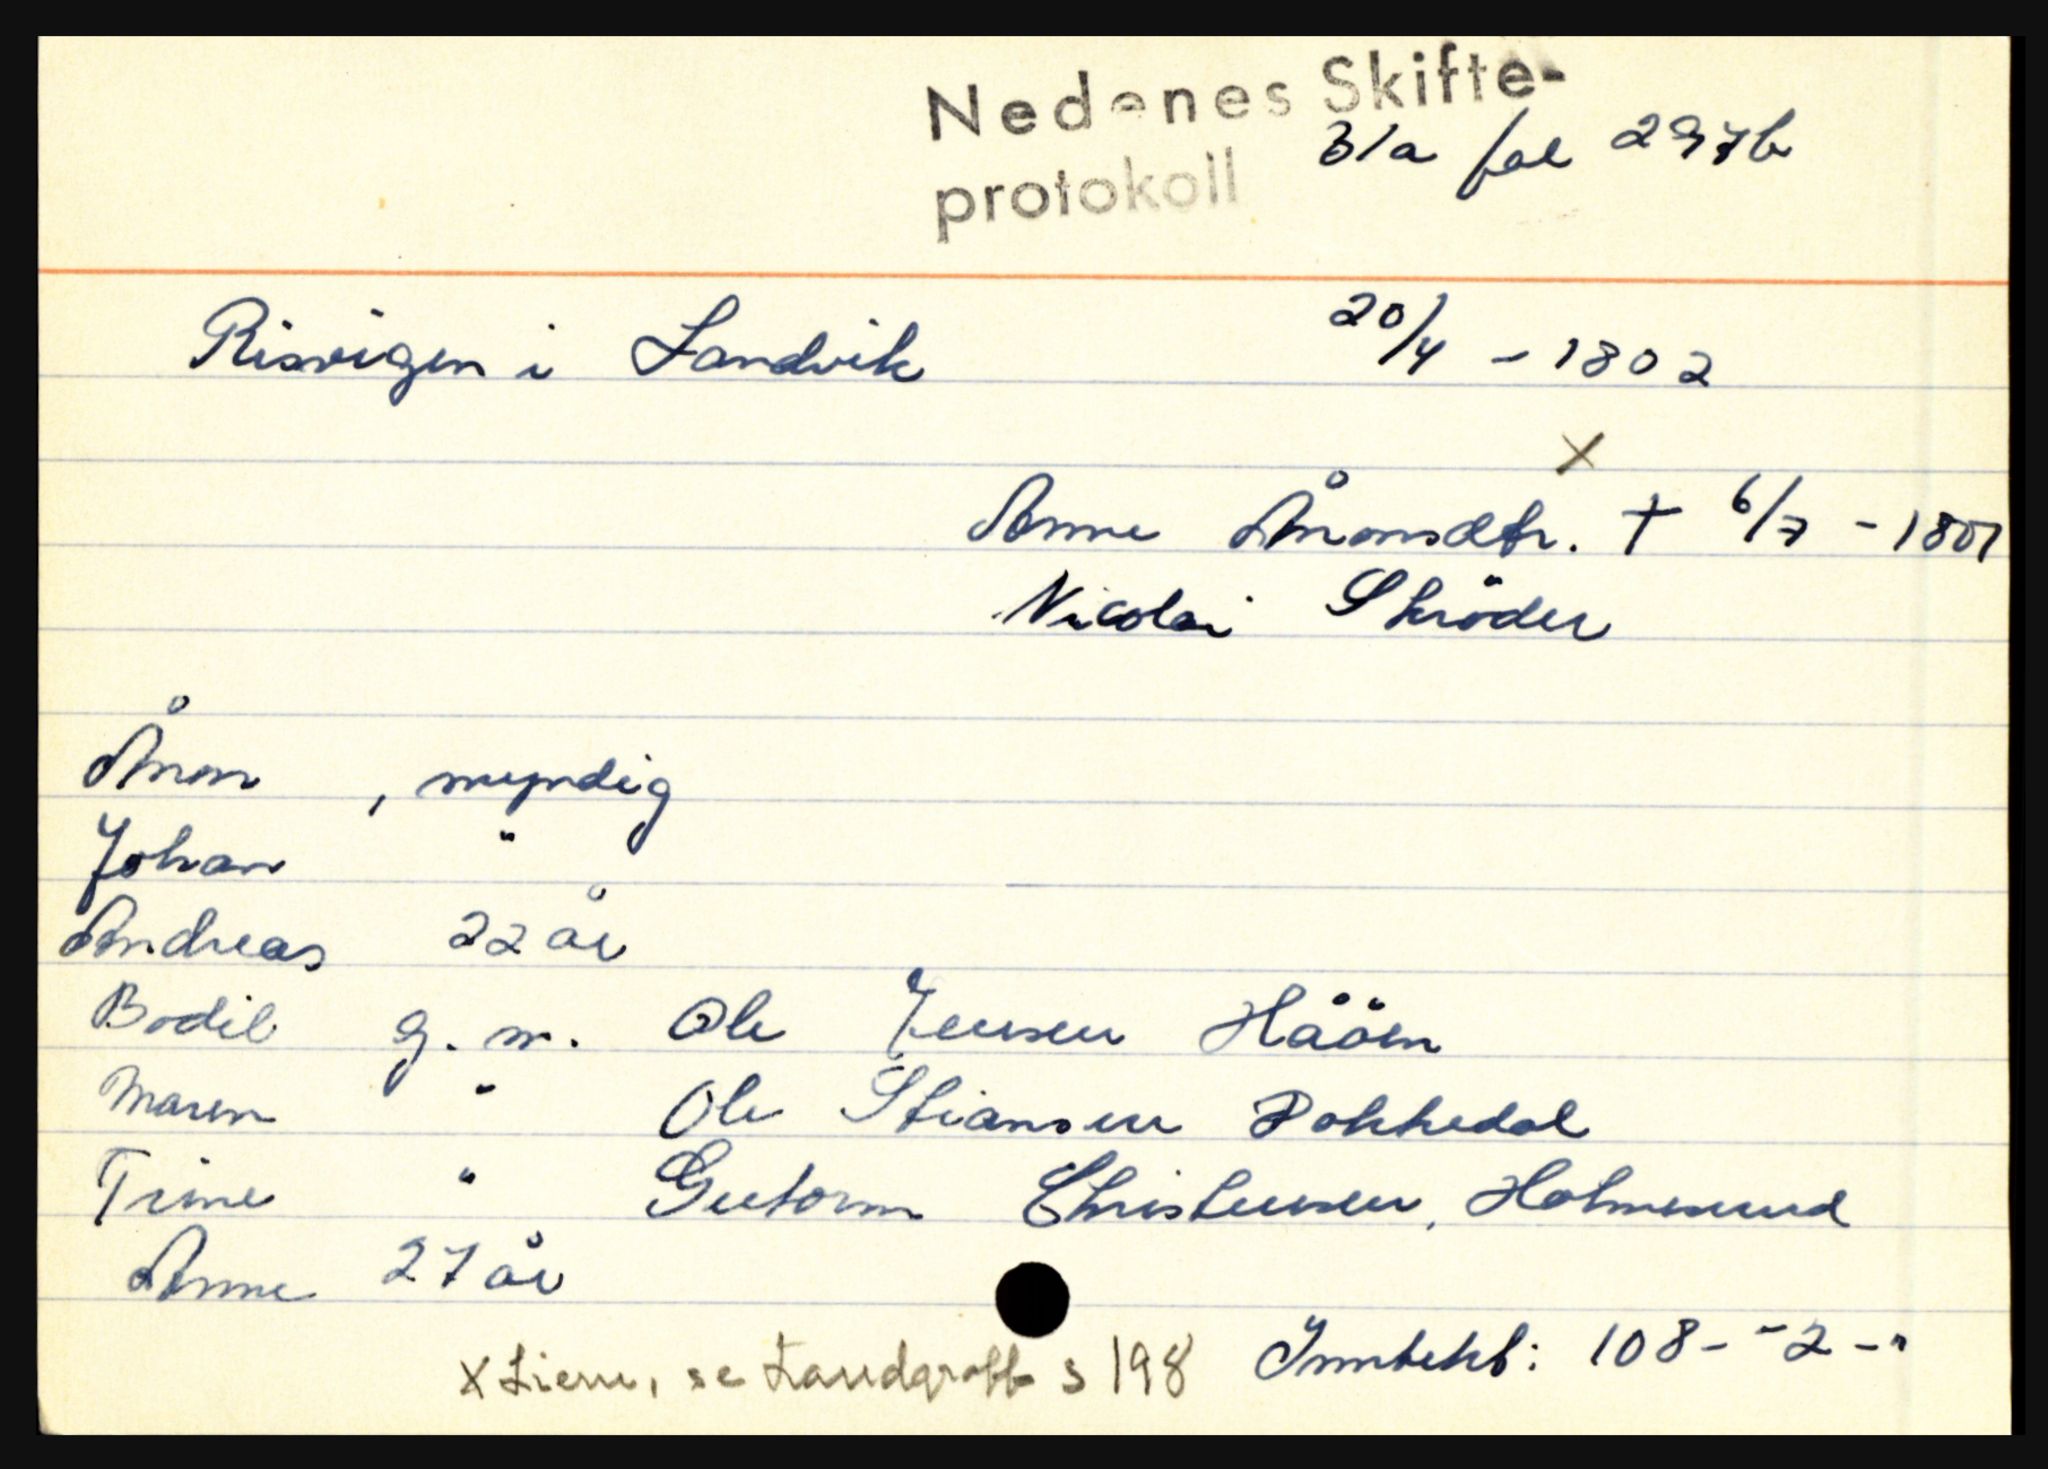 Nedenes Skifte-
protokoll
31a fol 297b
Risvigen i Landvik 20/4 - 1802
X
Anne Ånonsdtr. † 6/7 - 1801
Nicolai Skröder
Ånon , myndig
Johan "
Andreas 22 år
Bodil g. m. Ole Jensen Hååen
Maren " Ole Stiansen Dokkedal
Trine " Gutorm Christensen, Holmesund
Anne 27 år
Inntekt: 108- - 2 - "
x Lien, se Landgraff s 198